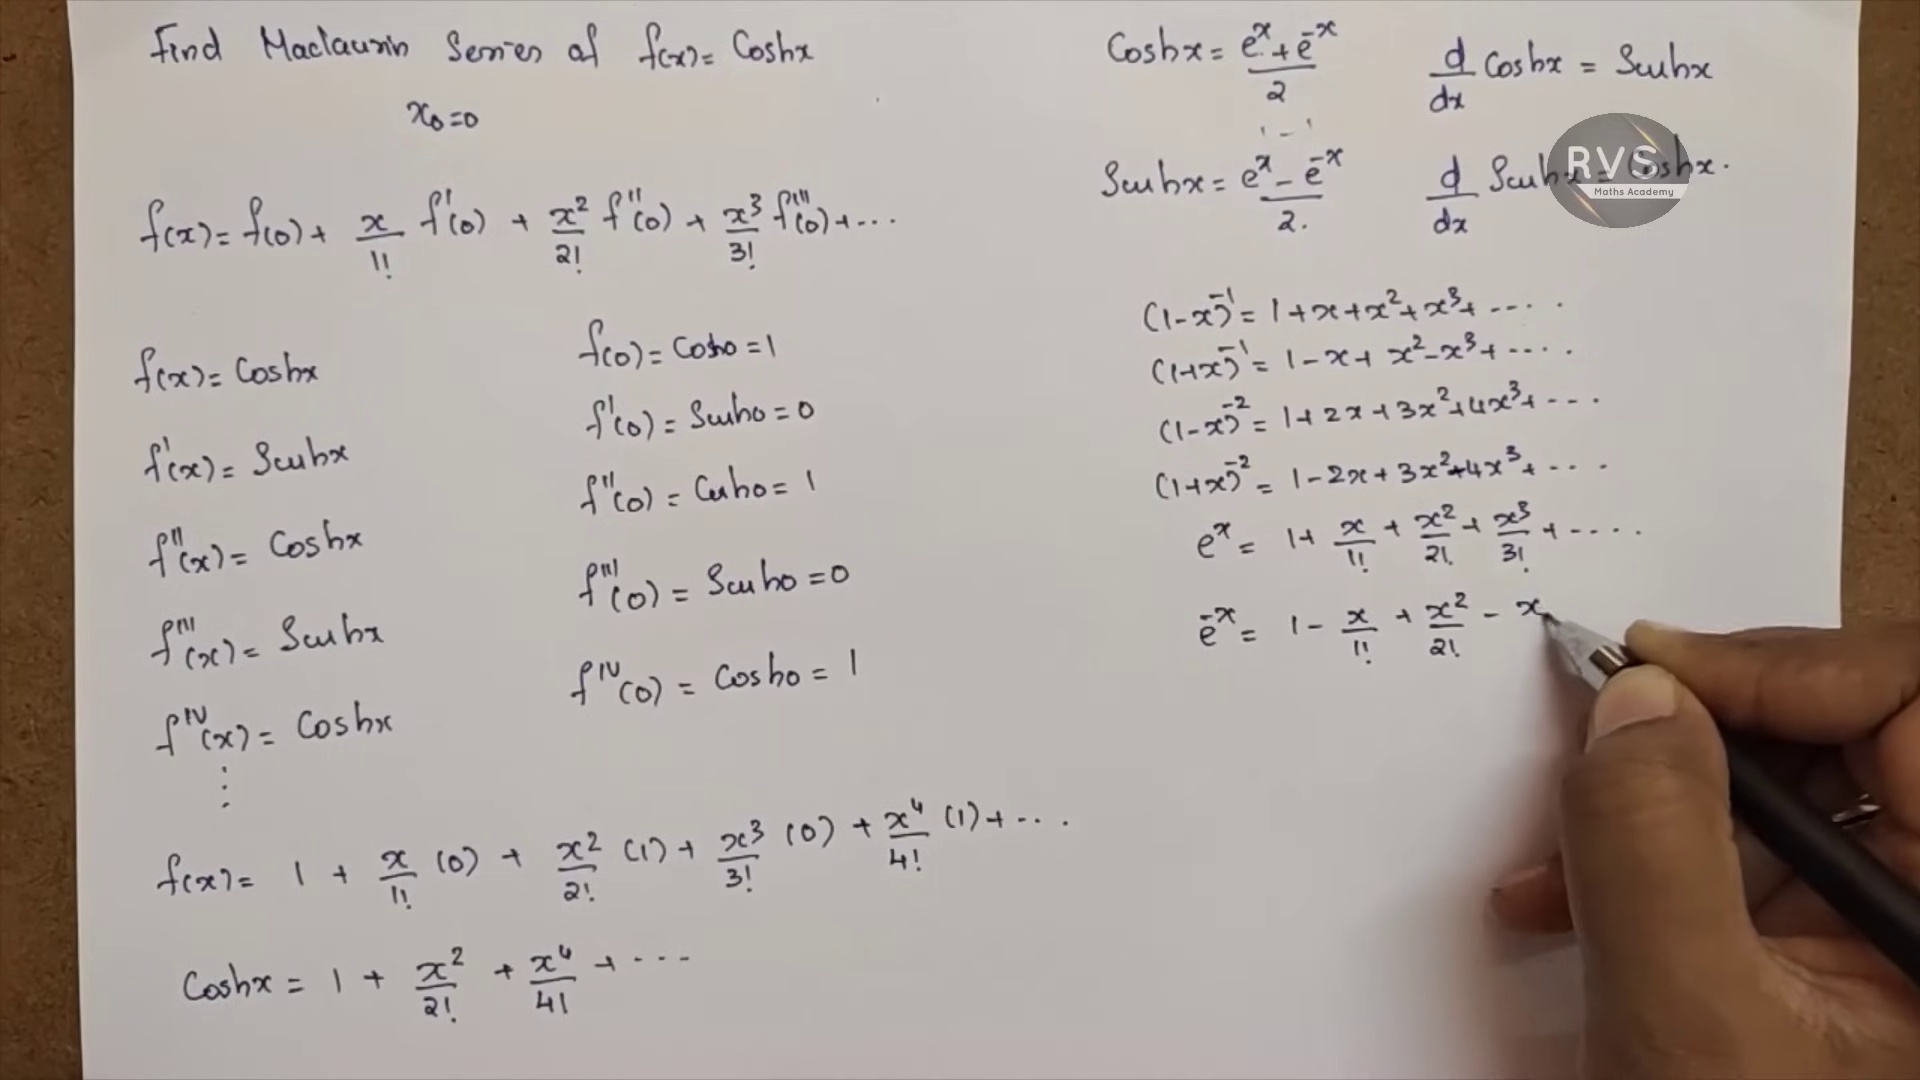 Find Maclaurin Series of f(x) = Coshx
x₀=0
f(x) = f(0) + x/1! f'(0) + x²/2! f''(0) + x³/3! f'''(0) + ...
f(x) = Coshx
f(0) = Cosh0 = 1
f'(x) = Sinhx
f'(0) = Sinh0 = 0
f''(x) = Coshx
f''(0) = Cosh0 = 1
f'''(x) = Sinhx
f'''(0) = Sinh0 = 0
f^IV(x) = Coshx
f^IV(0) = Cosh0 = 1
⋮
f(x) = 1 + x/1! (0) + x²/2! (1) + x³/3! (0) + x⁴/4! (1) + ...
Coshx = 1 + x²/2! + x⁴/4! + ...
Coshx = (e^x + e^-x)/2
d/dx Coshx = Sinhx
Sinhx = (e^x - e^-x)/2.
d/dx Sinhx = Coshx.
RVS
Maths Academy
(1-x)^-1 = 1+x+x²+x³+ ....
(1+x)^-1 = 1-x+x²-x³+ ....
(1-x)^-2 = 1+2x+3x²+4x³+ ...
(1+x)^-2 = 1-2x+3x²-4x³+ ...
e^x = 1+ x/1! + x²/2! + x³/3! + ....
e^-x = 1 - x/1! + x²/2! - x